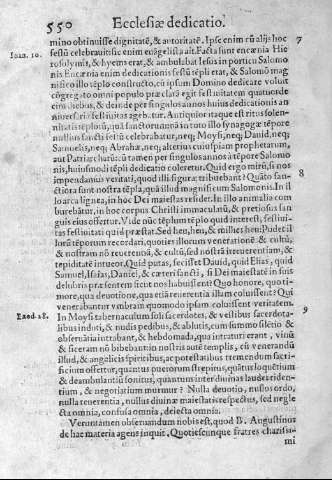 550 Ecclesiæ dedicatio.
mino obtinuisse dignitatē, & autoritatē. Ipse enim cū alijs hoc 7
Ioan. 10. festū celebrauit: sic enim euāgelista ait. Facta sunt encænia Hie
rosolymis, & hyems erat, & ambulabat Iesus in porticu Salomo
nis. Encænia enim dedicationis festū tēpli erat, & Salomō mag
nifico illo tēplo constructo, cū ipsum Domino dedicare voluit
cōgregato omni populo præclara egit festiuitatem
dies, & deinde per singulos annos huius dedicationis an
festiuitas agebatur. Antiquior itaque est rito solen
nitatis templorū, quā sanctorum: in toto illo synagogæ tēpore
nullius sancti festū celebrabatur, neq; Moysi, neq; Dauid, neq;
Samuelis, neq; Abrahæ, neq; alterius cuiuspiam prophetarum,
aut Patriarcharū: tamen per singulos annos à tēpore Salomo
nis, huiusmodi tēpli dedicatio coleretur. Quid ergo mirū, si nos
impendamus veritati, quod illi figuræ tribuebant? Quāto san- 8
ctiora sunt nostra tēpla, quā illud magnificum Salomonis. In il
lo arca lignea, in hoc Dei maiestas residet. In illo animalia com
burebātur, in hoc corpus Christi immaculatū, & pretiosus san
guis eius offertur. Vide nūc tēplum tēplo quid intersit, festiui-
tas festiuitati quid præstat. Sed heu, heu, & milies heu: Pudet il
lorū tēporum recordari, quoties illorum venerationē & cultū,
& nostram nō reuerentiā, & cultū, sed nostrā irreuerentiam, &
tepiditatē intueor. Quid putas, fecisset Dauid, quid Elias, quid
Samuel, Isaias, Daniel, & cæteri sancti, si Dei maiestatē in suis
delubris præsentem sicut nos habuissent? Quo honore, quo ti-
more, qua deuotione, qua etiā reuerentia illam coluissent? Qui
venerabuntur vmbram quomodo ipsam coluissent veritatem.
Exod 28. In Moysi tabernaculum soli sacerdotes, & vestibus sacerdota- 9
libus induti, & nudis pedibus, & ablutis, cum summo silētio &
obseruātia intrabant, & hebdomada, qua intraturi erant, vinū
& siceram nō bibebant: in nostra autē templa, cū venerandū
illud, & angelicis spiritibus, ac potestatibus tremendum sacri-
ficium offertur, quantus puerorum strepitus, quātus loquētium
& deambulantiū sonitus, quantum inter diuinas laudes riden-
tium, & negotiatium murmur? Nulla deuotio, nullus ordo,
nulla reuerentia, nullus diuinæ maiestatis respectus, sed negle
cta omnia, confusa omnia, deiecta omnia.
Veruntamen obseruandum nobis est, quod B. Augustinus
de hac materia agens inquit. Quotiescunque fratres charissi-
mi